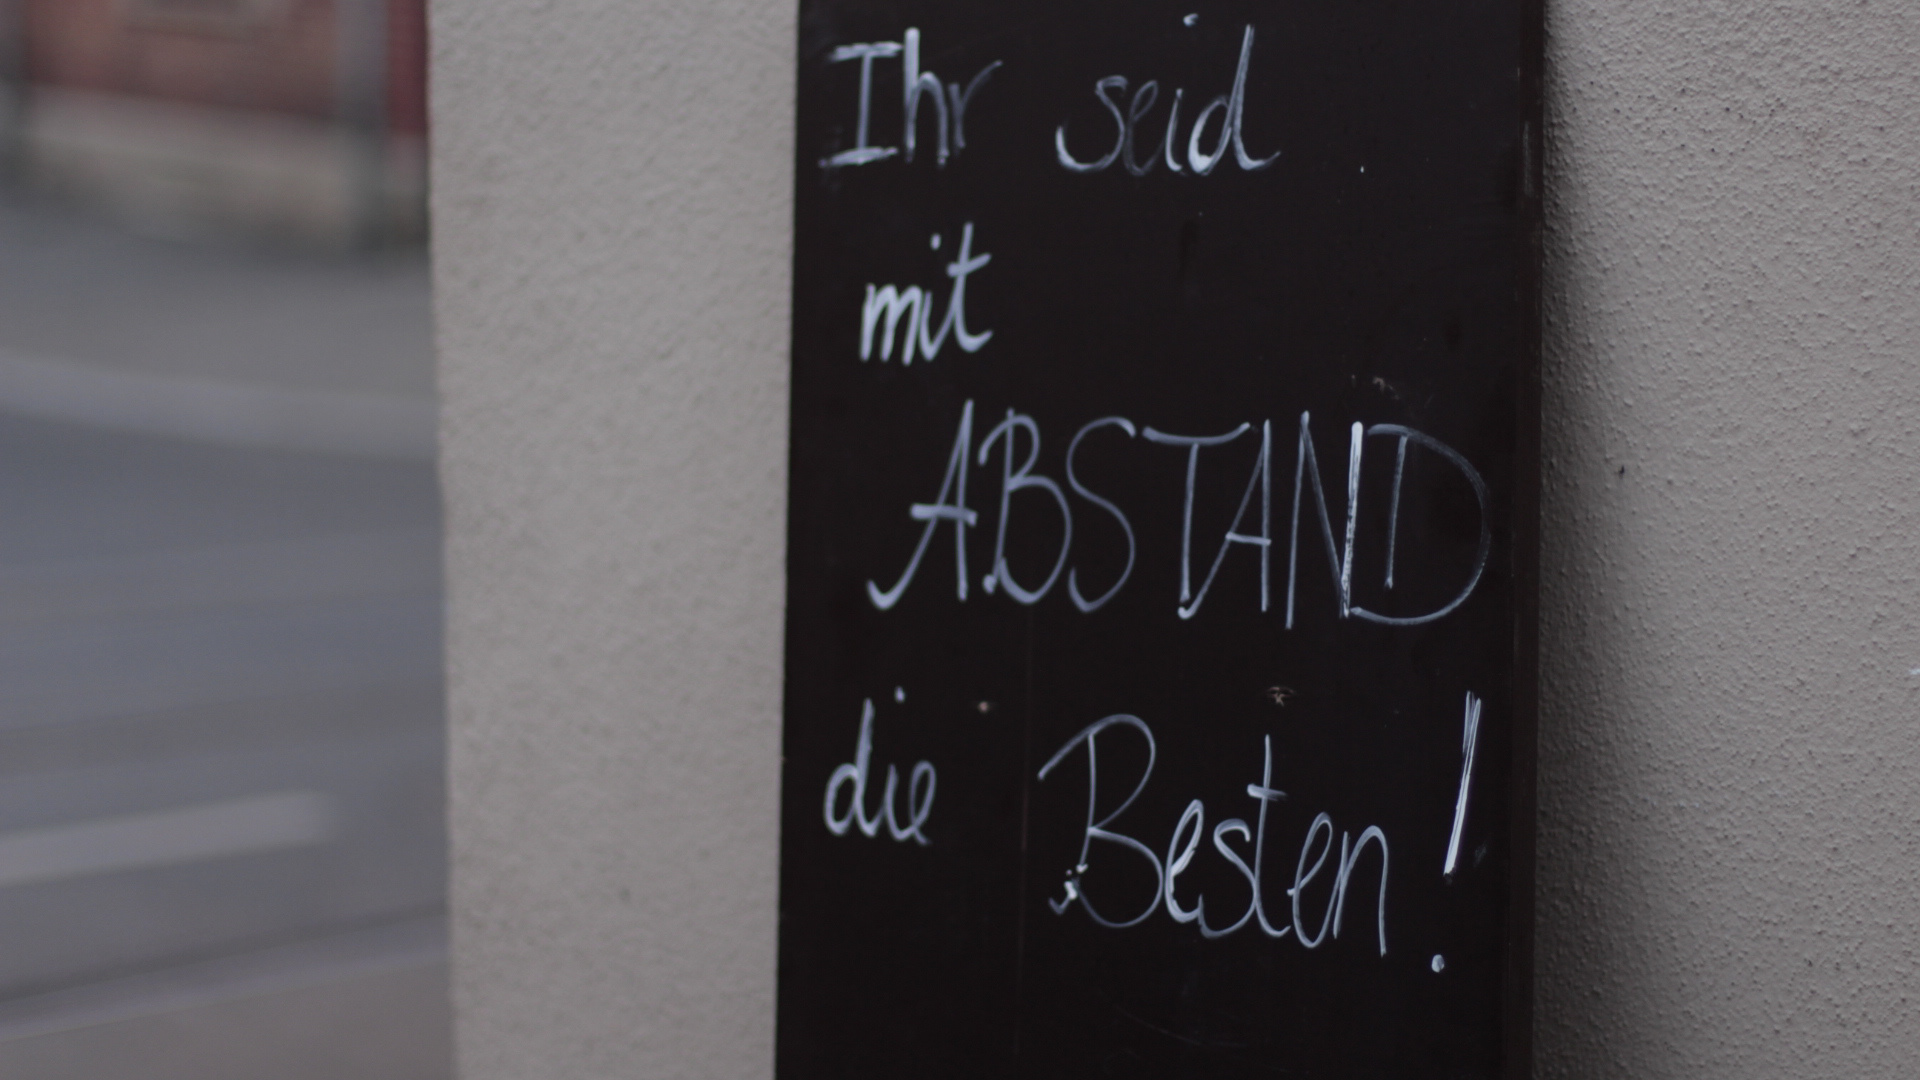 Ihr seid
mit
ABSTAND
die Besten!